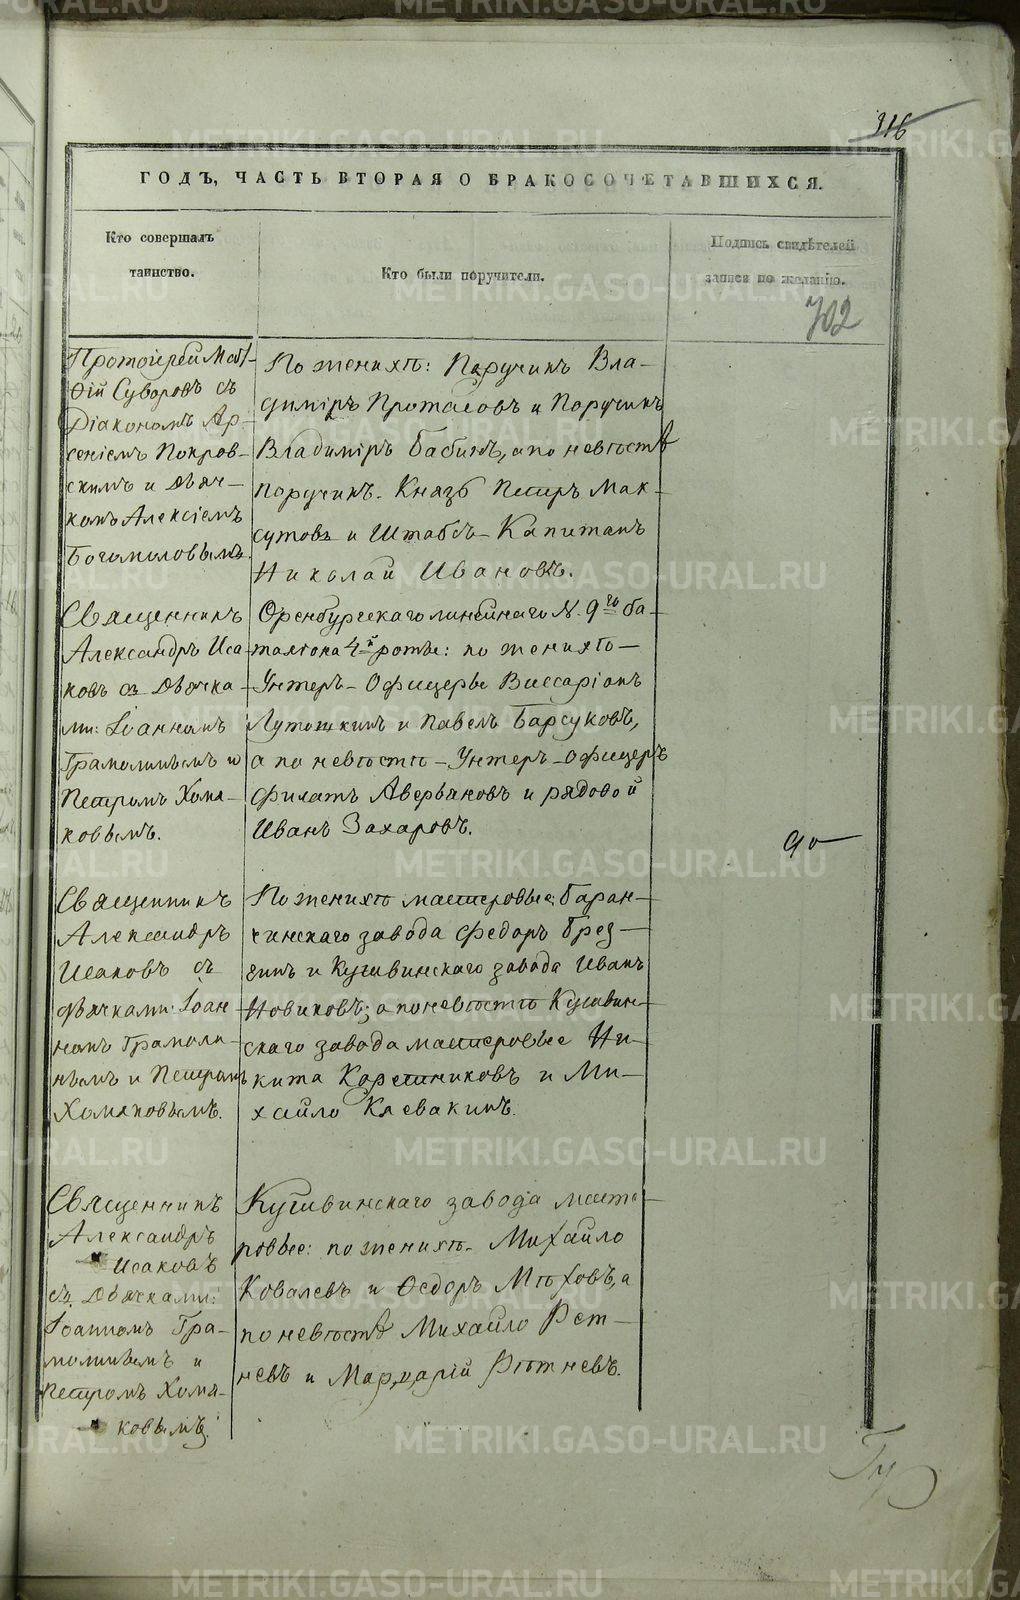 316
ГОДЪ, ЧАСТЬ ВТОРАЯ О БРАКОСОЧЕТАВШИХСЯ.
Кто совершалъ
таинство.
Кто были поручители.
Подпись свидѣтелей
записи по желанію.
702
Протоіерей Мат-
ѳій Суворовъ съ
Діакономъ Ар-
сеніемъ Покров-
скимъ и Дьяч-
комъ Алексіемъ
Богомоловымъ.
По женихѣ: Поручикъ Вла-
димiръ Протасовъ и Поручикъ
Владимiръ Бабинъ, а по невѣстѣ
поручикъ. Князь Петръ Мак-
сутовъ и Штабсъ-Капитанъ
Николай Ивановъ.
Священникъ
Александръ Иса-
ковъ съ Дьячка-
ми: Іоанномъ
Грамолинымъ и
Петромъ Хомя-
ковымъ.
Оренбургскаго линейнаго N. 9го ба-
таліона 4й роты: по женихѣ-
Унтеръ-Офицеры Виссаріонъ
Лутошкинъ и Павелъ Барсуковъ,
а по невѣстѣ-Унтеръ-Офицеръ
Филатъ Аверьяновъ и рядовой
Иванъ Захаровъ.
Священникъ
Александръ
Исаковъ съ
дьячками: Іоан-
номъ Грамоли-
нымъ и Петромъ
Хомяковымъ.
По женихѣ мастеровые: Баран-
чинскаго завода Федоръ
и Кушвинскаго завода Иванъ
Новиковъ; а по невѣстѣ Кушвин-
скаго завода мастеровые Ни-
кита Коретниковъ и Ми-
хайло Клевакинъ.
Священникъ
Александръ
Исаковъ
съ Дьячками:
Іоанномъ Гра-
молинымъ и
Петромъ Хомя-
ковымъ.
Кушвинскаго завода масте-
ровые: по женихѣ- Михайло
Ковалевъ и Ѳедоръ Мѣховъ, а
по невѣстѣ Михайло Рѣт-
невъ и Рѣтневъ.
METRIKI.GASO-URAL.RU